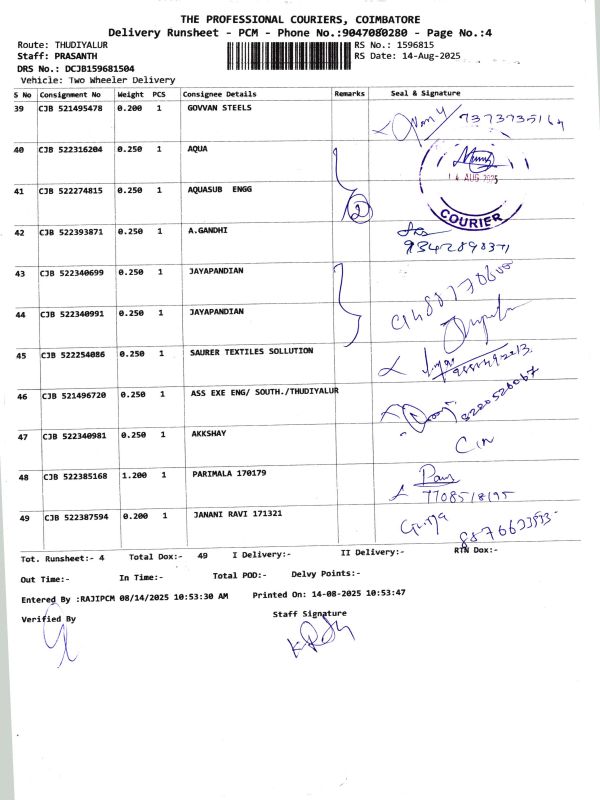 THE PROFESSIONAL COURIERS, COIMBATORE
Delivery Runsheet - PCM - Phone No.:9047080280 - Page No.:4
Route: THUDIYALUR
RS No.: 1596815
Staff: PRASANTH
RS Date: 14-Aug-2025
DRS No.: DCJB159681504
Vehicle: Two Wheeler Delivery
S No Consignment No Weight PCS Consignee Details Remarks Seal & Signature
39 CJB 521495478 0.200 1 GOVVAN STEELS
40 CJB 522316204 0.250 1 AQUA
14 AUG 2025
41 CJB 522274815 0.250 1 AQUASUB ENGG 2
COURIER
42 CJB 522393871 0.250 1 A.GANDHI
43 CJB 522340699 0.250 1 JAYAPANDIAN
44 CJB 522340991 0.250 1 JAYAPANDIAN
45 CJB 522254086 0.250 1 SAURER TEXTILES SOLLUTION
46 CJB 521496720 0.250 1 ASS EXE ENG/ SOUTH./THUDIYALUR
8220526067
47 CJB 522340981 0.250 1 AKKSHAY
48 CJB 522385168 1.200 1 PARIMALA 170179
49 CJB 522387594 0.200 1 JANANI RAVI 171321
Tot. Runsheet:- 4 Total Dox:- 49 I Delivery:- II Delivery:- RTN Dox:-
Out Time:- In Time:- Total POD:- Delvy Points:-
Entered By :RAJIPCM 08/14/2025 10:53:30 AM Printed On: 14-08-2025 10:53:47
Verified By
Staff Signature